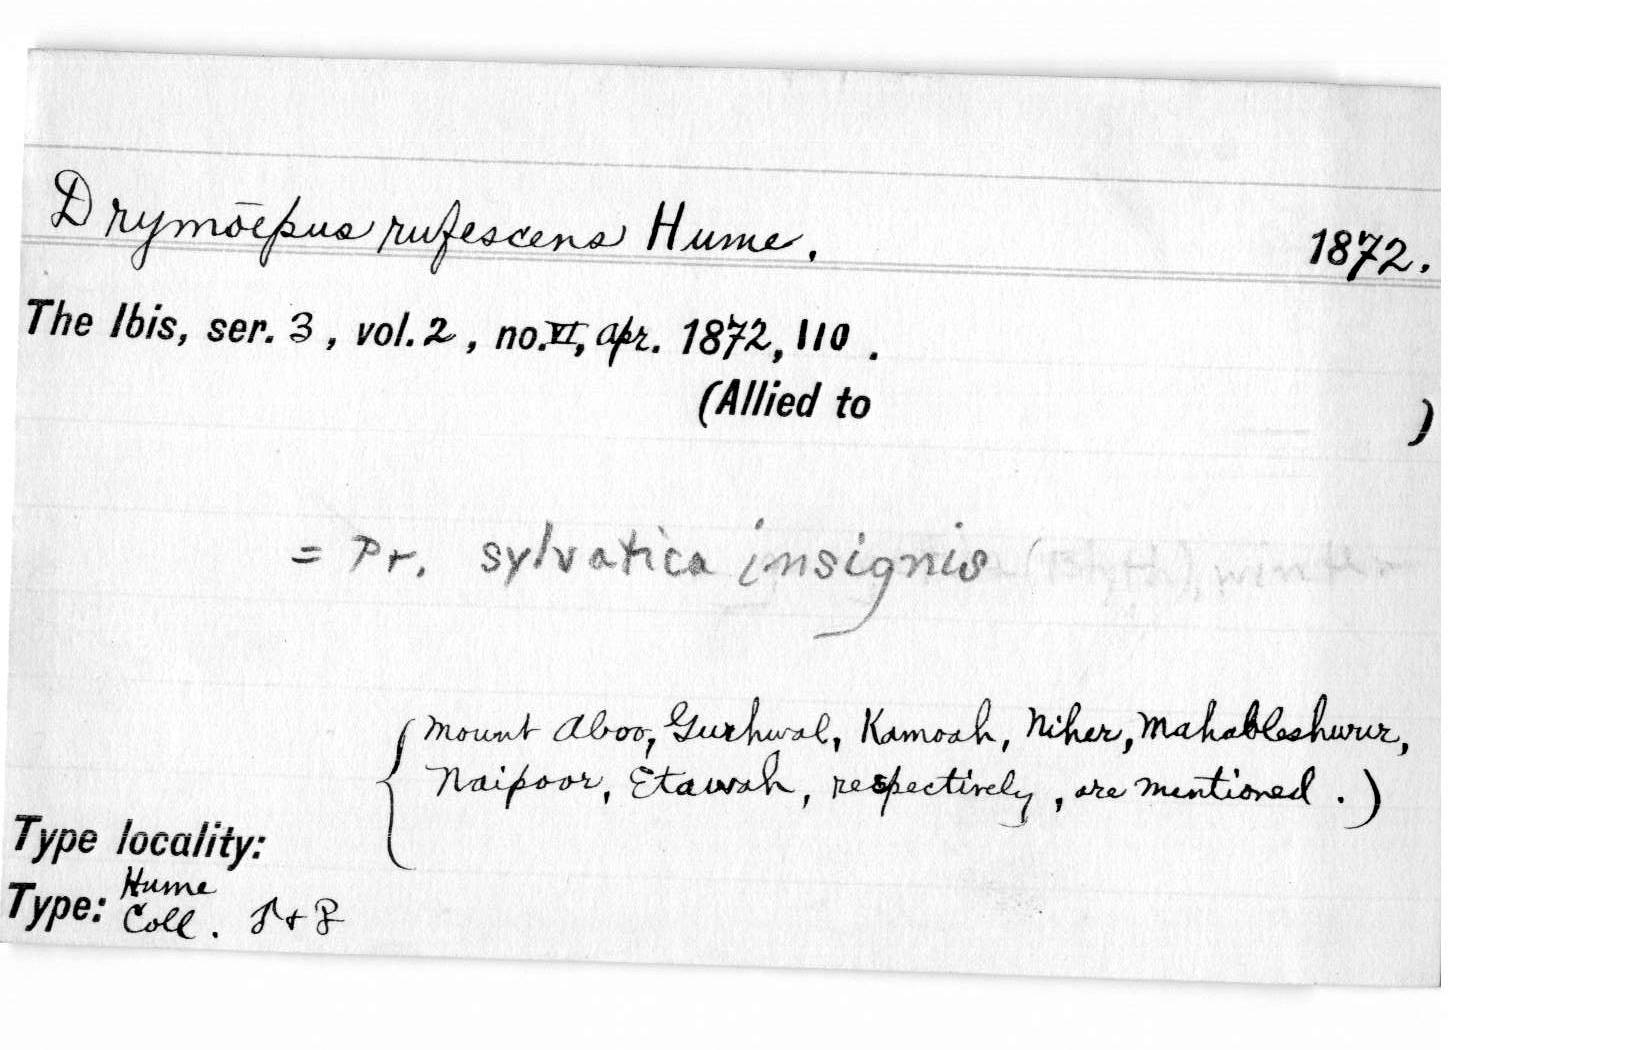 Drymoēpus rufescens Hume. 1872.
The Ibis, ser. 3, vol. 2, no. VI, Apr. 1872, 110.
(Allied to )
= Pr. sylvatica insignis (Blyth), winter
{Mount Aboo, Gurhwal, Kamoah, Niher, Mahableshwur,
Naipoor, Etawah, respectively, are mentioned.)
Type locality:
Type: Hume
Coll. ♂ + ♀